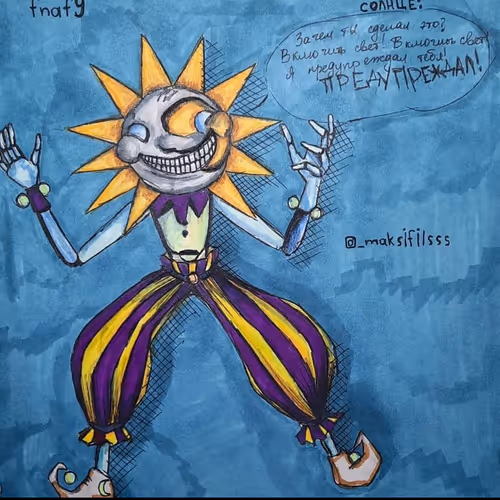 fnaf9
СОЛНЦЕ:
Зачем ты сделал это?
Включить свет! Включить свет!
Я предупреждал тебя!
ПРЕДУПРЕЖДАЛ!
@_maksifilsss